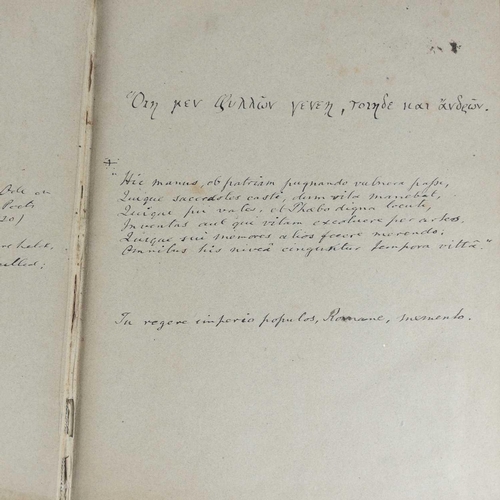 Ode on
Poets
Οἵη μεν Φυλλῶν γενεη, τοιηδε και ἄνδρῶν.
"Hic manus, ob patriam pugnando vulnera passi,
Quique sacerdotes casti, dum vita manebat,
Quique pii vates, et Phœbo digna locuti,
Inventas aut qui vitam excoluere per artes,
Quique sui memores alios fecere merendo:
Omnibus his niveâ cinguntur tempora vittâ."
Tu regere imperio populos, Romane, memento.